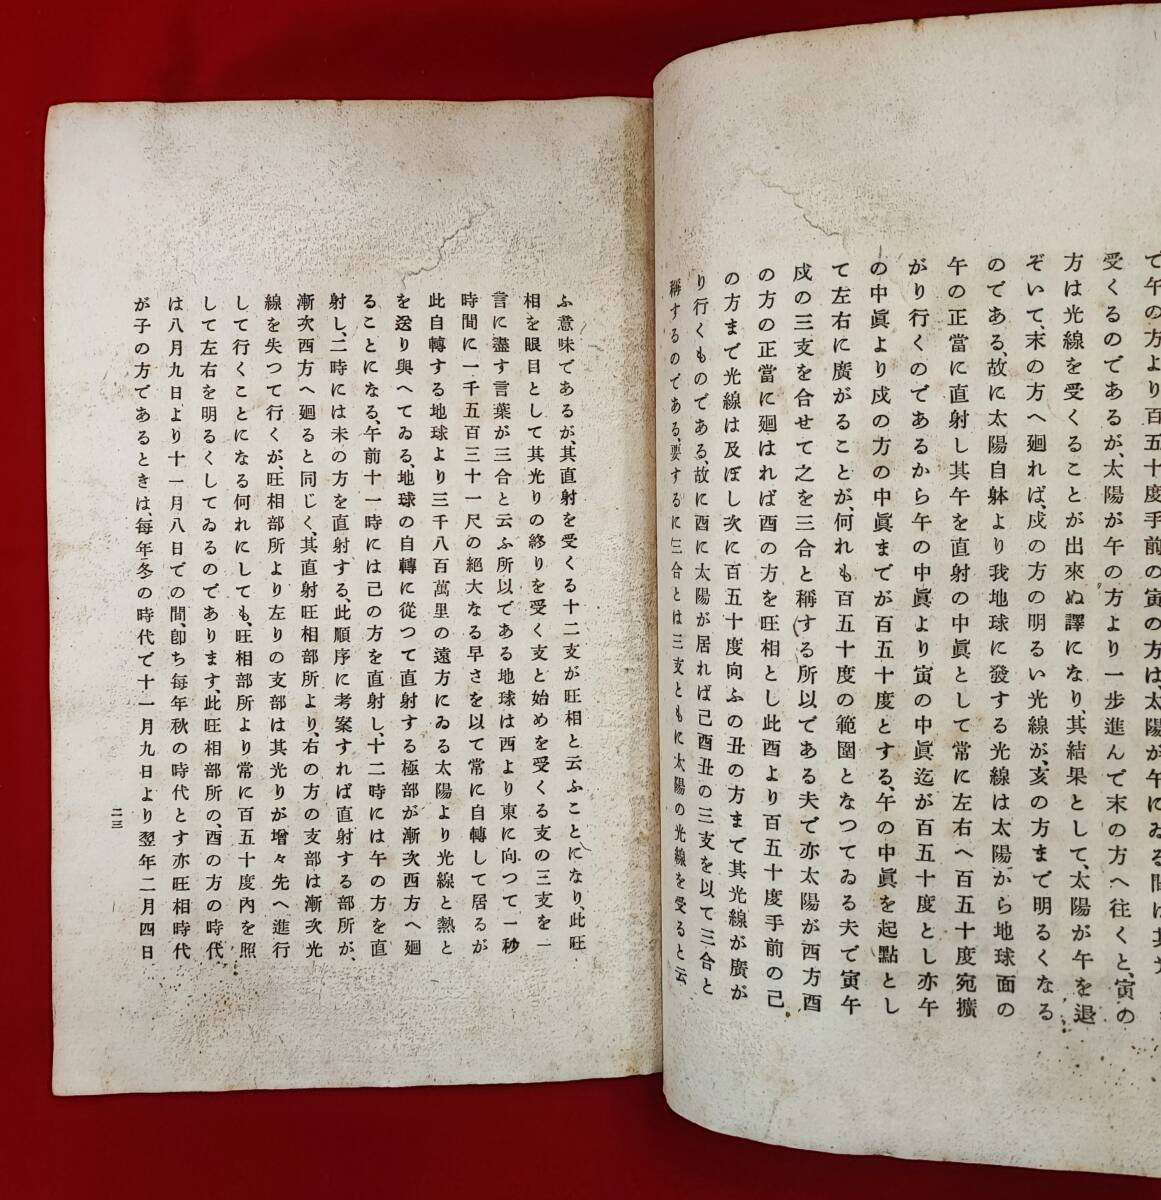 で午の方より百五十度手前の寅の方は、太陽が午にゐる間は其光
受くるのであるが、太陽が午の方より一歩進んで末の方へ往くと、寅の
方は光線を受くることが出來ぬ譯になり、其結果として、太陽が午を退
ぞいて、末の方へ廻れば、戌の方の明るい光線が、亥の方まで明るくなる
のである、故に太陽自躰より我地球に發する光線は太陽から地球面の
午の正當に直射し其午を直射の中眞として常に左右へ百五十度宛擴
がり行くのであるから午の中眞より寅の中眞迄が百五十度とし亦午
の中眞より戌の方の中眞までが百五十度とする、午の中眞を起點とし
て左右に廣がることが、何れも百五十度の範圍となつてゐる夫で寅午
戌の三支を合せて之を三合と稱する所以である夫で亦太陽が西方酉
の方の正當に廻はれば酉の方を旺相とし此酉より百五十度手前の己
の方まで光線は及ぼし次に百五十度向ふの丑の方まで其光線が廣が
り行くものである、故に酉に太陽が居れば己酉丑の三支を以て三合と
稱するのである、要するに三合とは三支ともに太陽の光線を受ると云
ふ意味であるが、其直射を受くる十二支が旺相と云ふことになり、此旺
相を眼目として其光りの終りを受く支と始めを受くる支の三支を一
言に盡す言葉が三合と云ふ所以である地球は西より東に向つて一秒
時間に一千五百三十一尺の絶大なる早さを以て常に自轉して居るが
此自轉する地球より三千八百萬里の遠方にゐる太陽より光線と熱と
を送り與へてゐる、地球の自轉に從つて直射する極部が漸次西方へ廻
ることになる、午前十一時には己の方を直射し、十二時には午の方を直
射し、二時には未の方を直射する、此順序に考案すれば直射する部所が、
漸次西方へ廻ると同じく、其直射旺相部所より、右の方の支部は漸次光
線を失つて行くが、旺相部所より左りの支部は其光りが增々先へ進行
して行くことになる何れにしても、旺相部所より常に百五十度內を照
して左右を明るくしてゐるのであります、此旺相部所の、酉の方の時代、
は八月九日より十一月八日での間、卽ち每年秋の時代とす亦旺相時代
が子の方であるときは每年冬の時代で十一月九日より翌年二月四日
二三